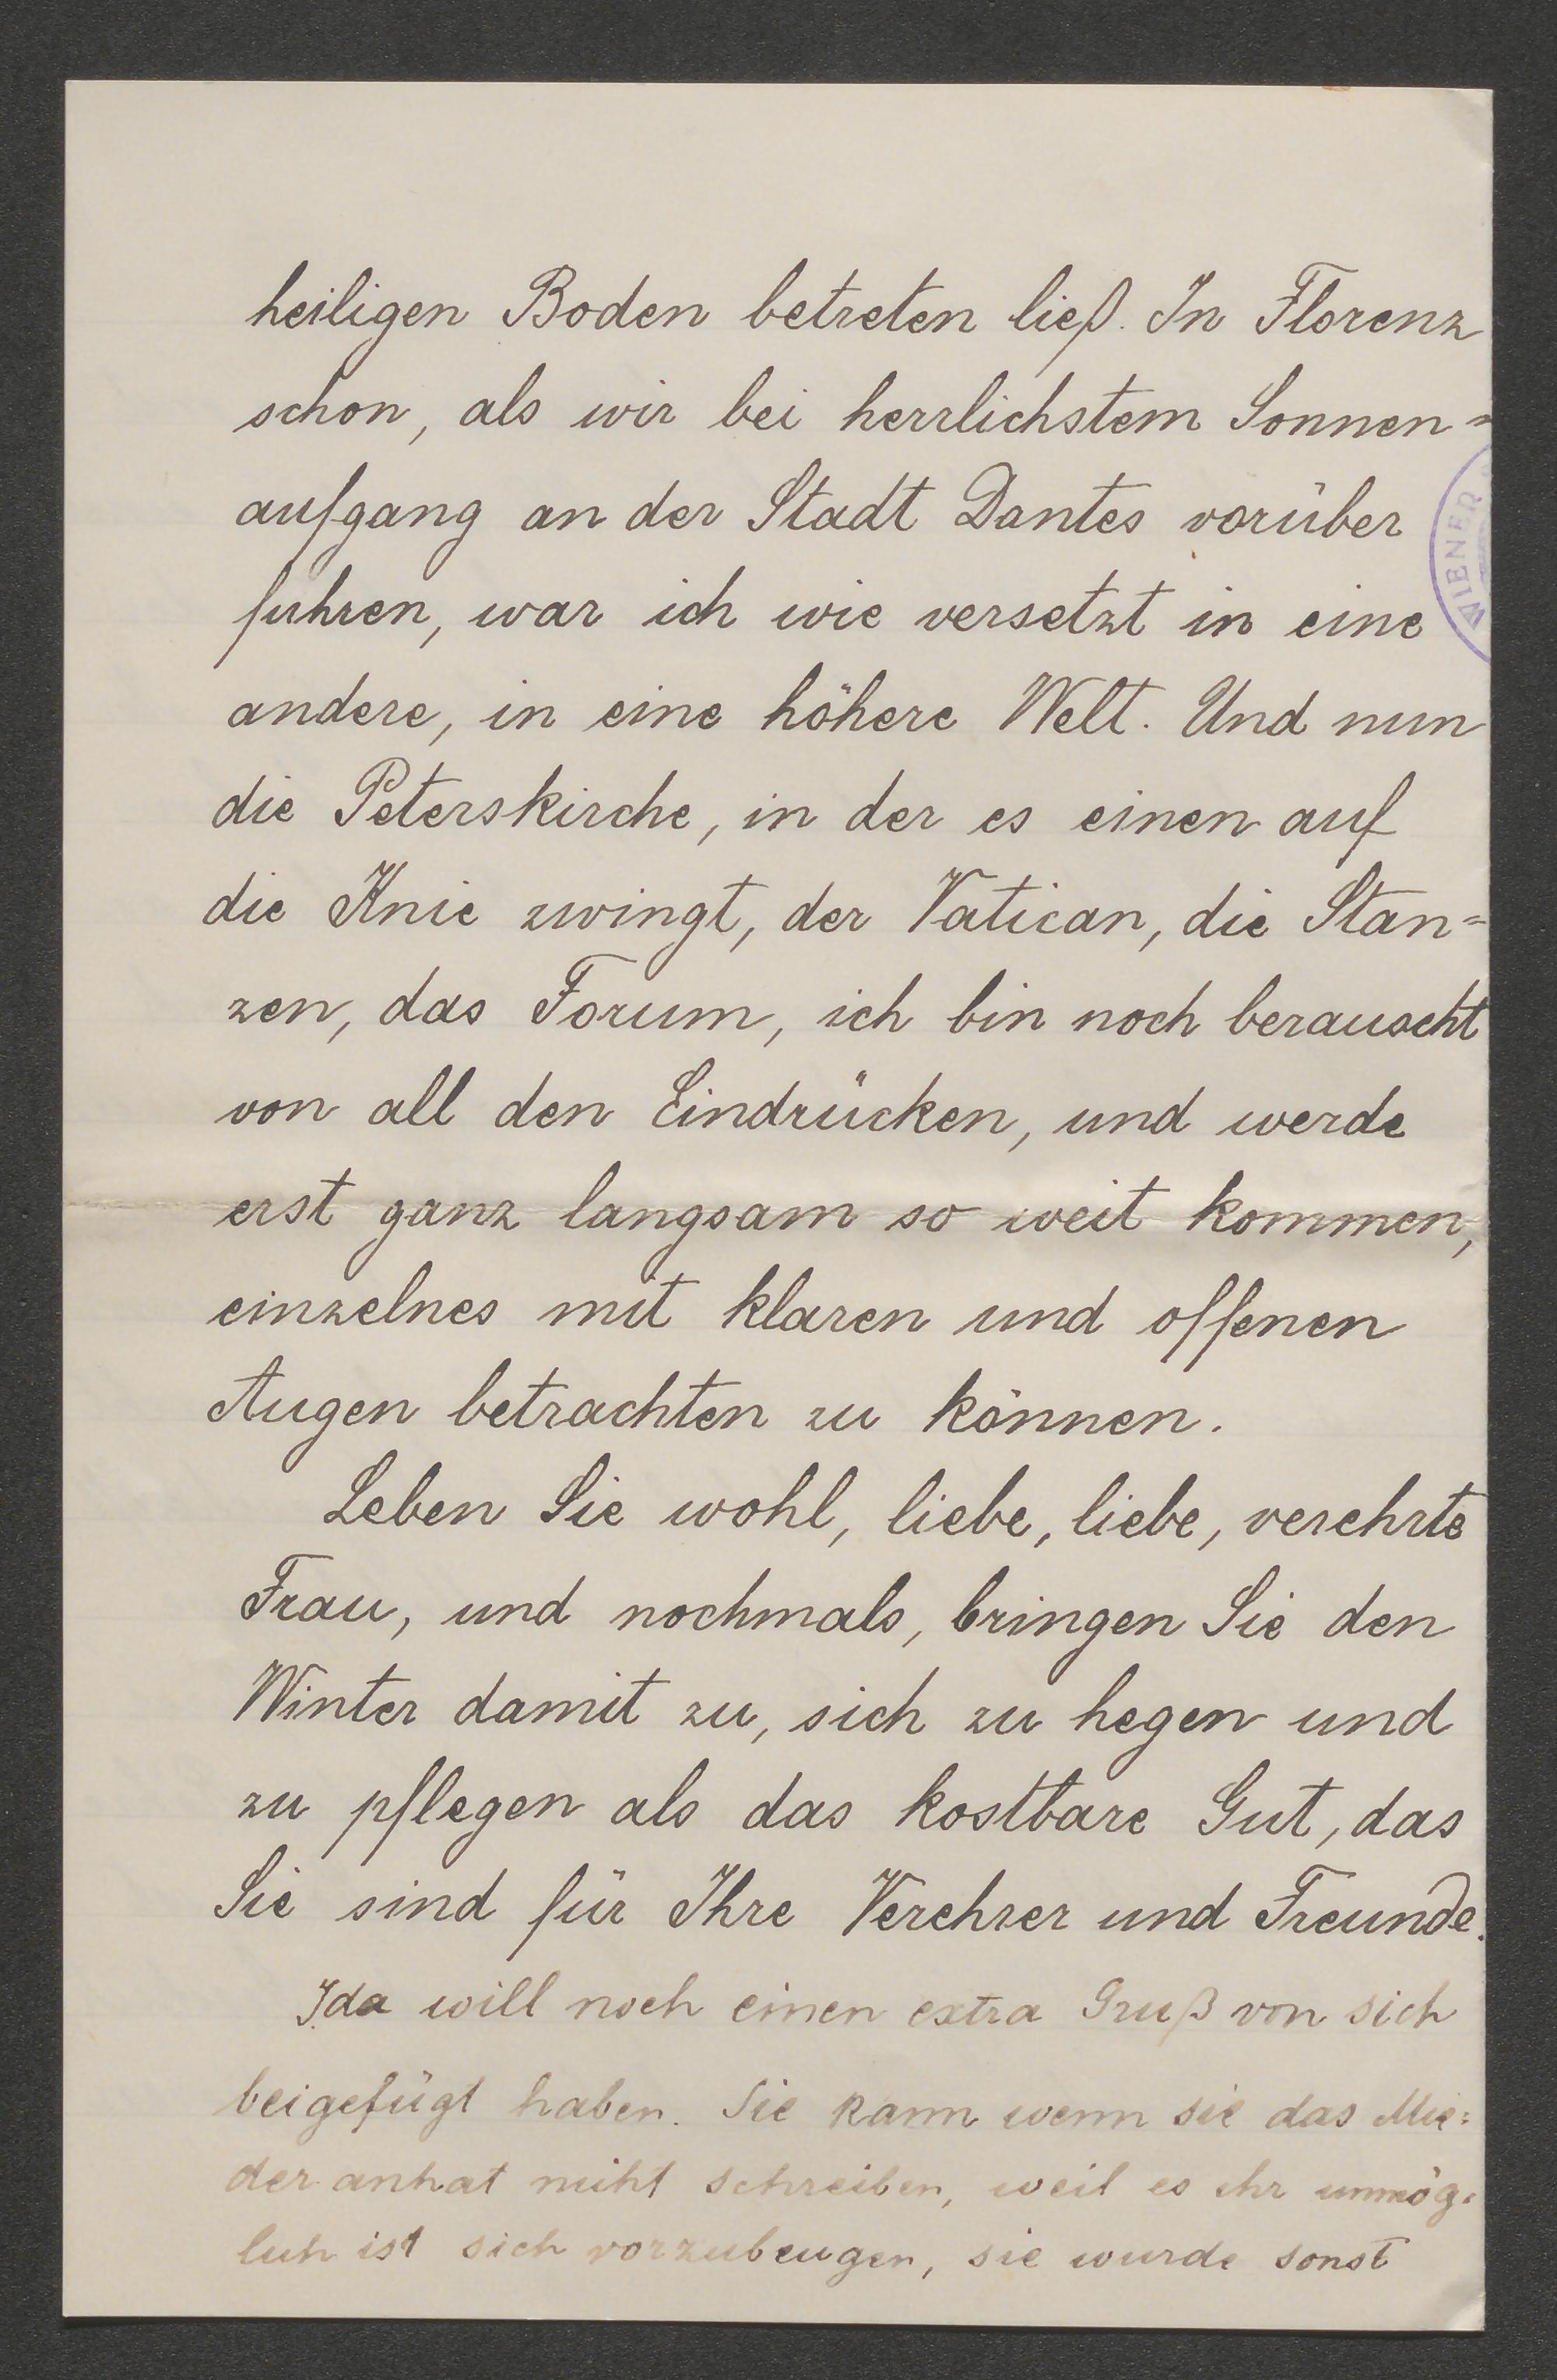 heiligen Boden betreten ließ. In Florenz
schon, als wir bei herrlichstem Sonnen=
aufgang an der Stadt Dantes vorüber
fuhren, war ich wie versetzt in eine
andere, in eine höhere Welt. Und nun
die Peterskirche, in der es einen auf
die Knie zwingt, der Vatican, die Stan=
zen, das Forum, ich bin noch berauscht
von all den Eindrücken, und werde
erst ganz langsam so weit kommen,
einzelnes mit klaren und offenen
Augen betrachten zu können.
Leben Sie wohl, liebe, liebe, verehrte
Frau, und nochmals, bringen Sie den
Winter damit zu, sich zu hegen und
zu pflegen als das kostbare Gut, das
Sie sind für Ihre Verehrer und Freunde.
Ida will noch einen extra Gruß von sich
beigefügt haben. Sie kann wenn sie das Mie=
der anhat nicht schreiben, weil es ihr unmög=
lich ist sich vorzubeugen, sie wurde sonst
WIENER